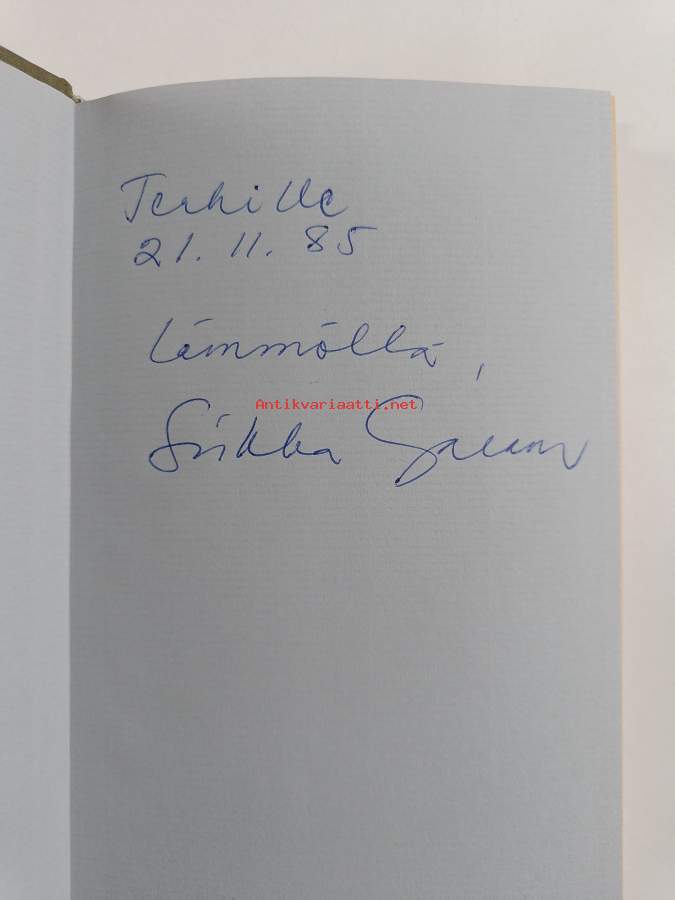 Terhille
21.11.85
Lämmöllä,
Antikvariaatti.net
Sirkka